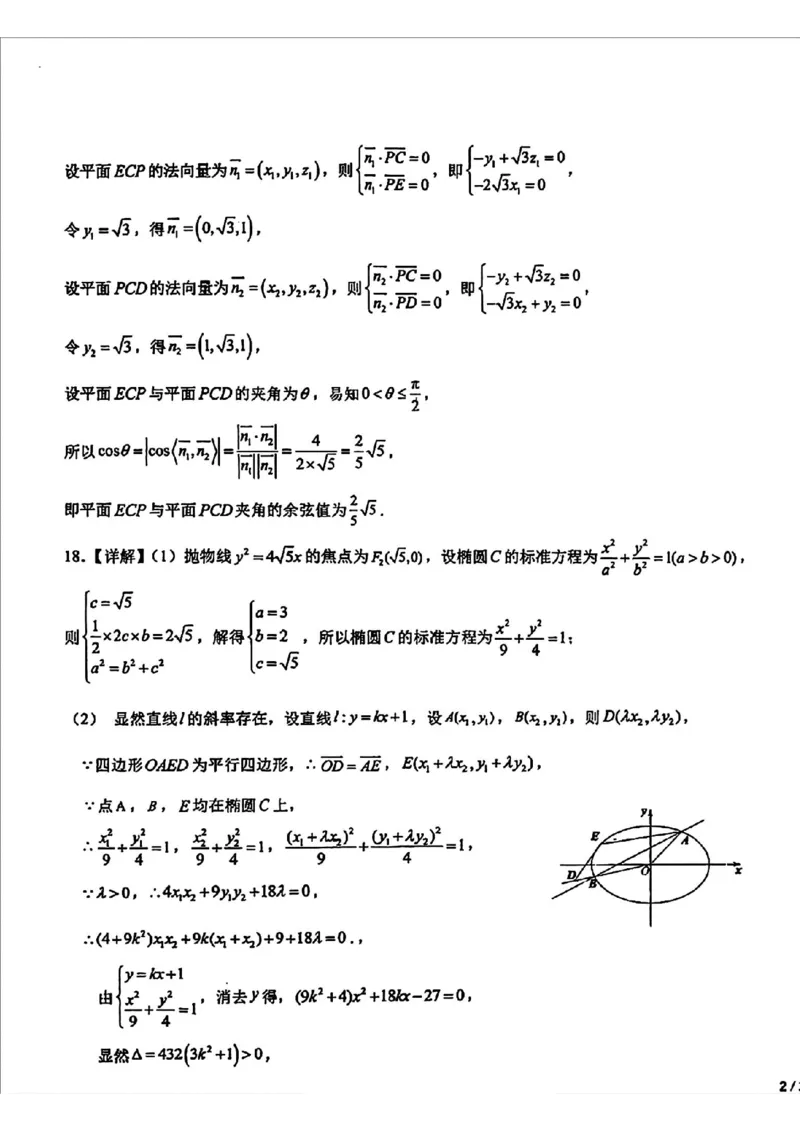 设平面ECP的法向量为$\overline{n_1}=(x_1,y_1,z_1)$，则$\begin{cases}\overline{n_1}\cdot\overline{PC}=0\\\overline{n_1}\cdot\overline{PE}=0\end{cases}$，即$\begin{cases}-y_1+\sqrt{3}z_1=0\\-2\sqrt{3}x_1=0\end{cases}$，
令$y_1=\sqrt{3}$，得$\overline{n_1}=(0,\sqrt{3},1)$，
设平面PCD的法向量为$\overline{n_2}=(x_2,y_2,z_2)$，则$\begin{cases}\overline{n_2}\cdot\overline{PC}=0\\\overline{n_2}\cdot\overline{PD}=0\end{cases}$，即$\begin{cases}-y_2+\sqrt{3}z_2=0\\-\sqrt{3}x_2+y_2=0\end{cases}$，
令$y_2=\sqrt{3}$，得$\overline{n_2}=(1,\sqrt{3},1)$，
设平面ECP与平面PCD的夹角为θ，易知$0<θ≤\frac{π}{2}$，
所以$\cosθ=|\cos\langle\overline{n_1},\overline{n_2}\rangle|=\frac{|\overline{n_1}\cdot\overline{n_2}|}{|\overline{n_1}||\overline{n_2}|}=\frac{4}{2×\sqrt{5}}=\frac{2}{5}\sqrt{5}$，
即平面ECP与平面PCD夹角的余弦值为$\frac{2}{5}\sqrt{5}$.
18.【详解】（1）抛物线$y^2=4\sqrt{5}x$的焦点为$F_2(\sqrt{5},0)$，设椭圆C的标准方程为$\frac{x^2}{a^2}+\frac{y^2}{b^2}=1(a>b>0)$，
则$\begin{cases}c=\sqrt{5}\\\frac{1}{2}×2c×b=2\sqrt{5}\\a^2=b^2+c^2\end{cases}$，解得$\begin{cases}a=3\\b=2\\c=\sqrt{5}\end{cases}$，所以椭圆C的标准方程为$\frac{x^2}{9}+\frac{y^2}{4}=1$；
（2） 显然直线l的斜率存在，设直线$l:y=kx+1$，设$A(x_1,y_1)$，$B(x_2,y_2)$，则$D(λx_2,λy_2)$，
∵四边形OAED为平行四边形，∴$\overline{OD}=\overline{AE}$，$E(x_1+λx_2,y_1+λy_2)$，
∵点A，B，E均在椭圆C上，
∴$\frac{x_1^2}{9}+\frac{y_1^2}{4}=1$，$\frac{x_2^2}{9}+\frac{y_2^2}{4}=1$，$\frac{(x_1+λx_2)^2}{9}+\frac{(y_1+λy_2)^2}{4}=1$，
∵λ>0，∴$4x_1x_2+9y_1y_2+18λ=0$，
∴$(4+9k^2)x_1x_2+9k(x_1+x_2)+9+18λ=0$.，
由$\begin{cases}y=kx+1\\\frac{x^2}{9}+\frac{y^2}{4}=1\end{cases}$，消去y得，$(9k^2+4)x^2+18kx-27=0$，
显然$Δ=432(3k^2+1)>0$，
y
E
A
D
B
O
x
2 /